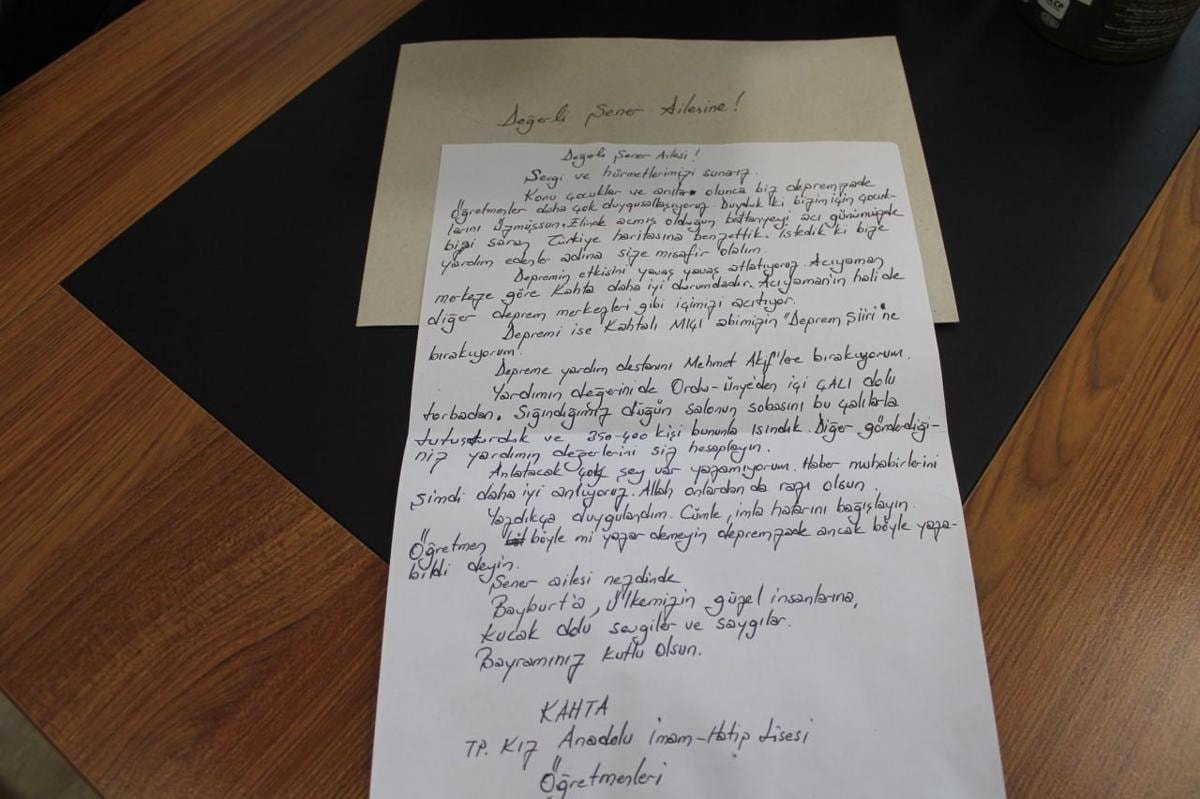 Değerli Şener Ailesine!
Değerli Şener Ailesi!
Sevgi ve hürmetlerimizi sunarız.
Konu çocuklar ve anılar olunca biz depremzede
Öğretmenler daha çok duygusallaşıyoruz. Duyduk ki bizim için çocuk-
larını üzmüşsün. Elinde açmış olduğun battaniyeyi acı günümüzde
bizi saran Türkiye haritasına benzettik. İstedik ki bize
yardım edenler adına size misafir olalım.
Depremin etkisini yavaş yavaş atlatıyoruz. Acıyaman
merkeze göre Kahta daha iyi durumdadır. Acıyaman'ın hali de
diğer deprem merkezleri gibi içimizi acıtıyor.
Depremi ise Kahtalı Mıçı abimizin "Deprem Şiiri"ne
bırakıyorum.
Depreme yardım destanını Mehmet Akif'lere bırakıyorum.
Yardımın değerini de Ordu-Ünye'den içi ÇALI dolu
torbadan. Sığındığımız düğün salonun sobasını bu çalılarla
tutuşturduk ve 350-400 kişi bununla ısındık. Diğer gönderdiği-
niz yardımın değerlerini siz hesaplayın.
Anlatacak çok şey var yazamıyorum. Haber muhabirlerini
şimdi daha iyi anlıyoruz. Allah onlardan da razı olsun.
Yazdıkça duygulandım. Cümle, imla hatarını bağışlayın.
Öğretmen böyle mi yazar demeyin depremzede ancak böyle yaza-
bildi deyin.
Şener ailesi nezdinde
Bayburt'a, Ülkemizin güzel insanlarına,
Kucak dolu sevgiler ve saygılar.
Bayramınız Kutlu Olsun.
KAHTA
TP. Kız Anadolu İmam-Hatip Lisesi
Öğretmenleri